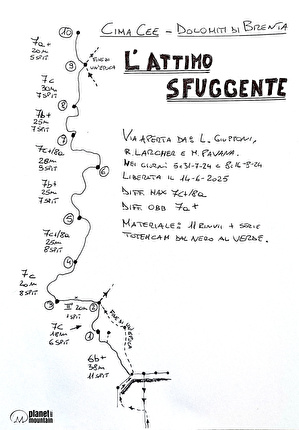 CIMA CEE - DOLOMITI DI BRENTA
L'ATTIMO
SFUGGENTE
VIA APERTA DA: L. GIUPPONI,
R. LARCHER E M. PAVANA.
NEI GIORNI 5:31-7-24 E 8:16-8-24
LIBERATA IL 14-6-2025
DIFF. MAX 7c+/8a
DIFF. OBB 7a+
MATERIALE: 11 RINVII + SERIE
TOTEMCAM DAL NERO AL VERDE.
10
7a+
20m
5 SPIT
9
7c
30m
7 SPIT
8
7b+
25m
7 SPIT
7
7c+/8a
28m
5 SPIT
6
7b+
25m
7 SPIT
5
7c+/8a
25m
8 SPIT
4
7c
20m
8 SPIT
3
II 20m
1 SPIT
2
7c
18m
6 SPIT
1
6b+
38m
11 SPIT
planet
mountain